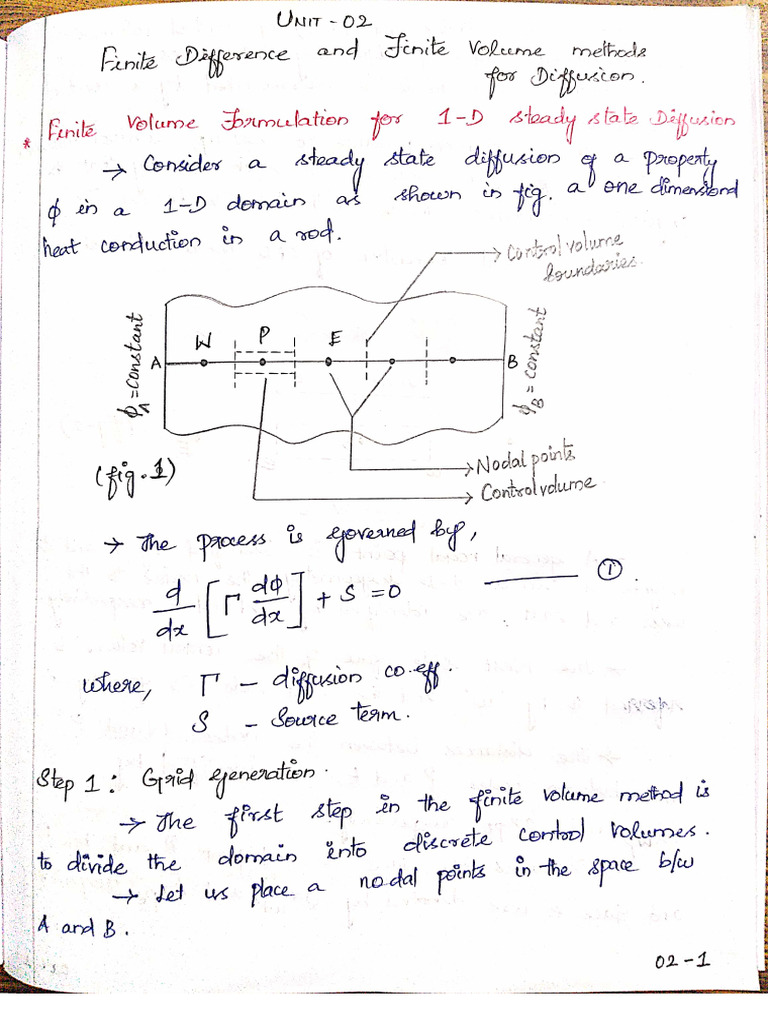 UNIT - 02
Finite Difference and Finite Volume methods
for Diffusion.
* Finite Volume Formulation for 1-D steady state Diffusion
→ Consider a steady state diffusion of a property
ϕ in a 1-D domain as shown in fig. a one dimensional
heat conduction in a rod.
→ Control volume
boundaries.
ϕA = constant
A
W
P
E
B
ϕB = constant
(fig. 1)
→ Nodal points
→ Control volume
→ The process is governed by,
d/dx [Γ dϕ/dx] + S = 0 ——— ①.
where, Γ – diffusion co.eff.
S – Source term.
Step 1 : Grid generation.
→ The first step in the finite volume method is
to divide the domain into discrete control volumes.
→ Let us place a nodal points in the space b/w
A and B.
02-1